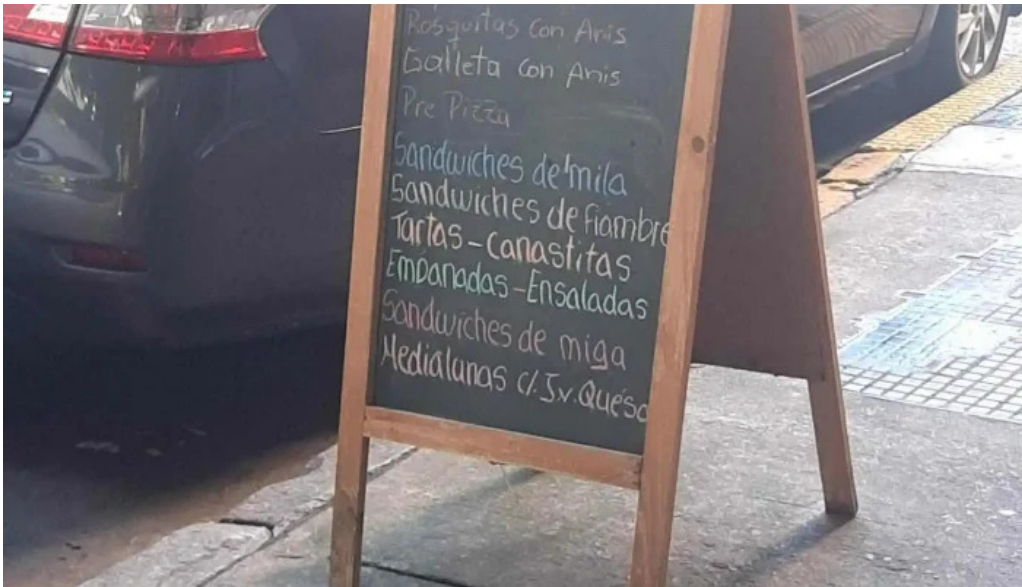 Rosquitas con Anis
Galleta con Anis
Pre Pizza
Sandwiches de mila
Sandwiches de fiambre
Tartas - canastitas
Empanadas - Ensaladas
Sandwiches de miga
Medialunas c/. Jv. Queso